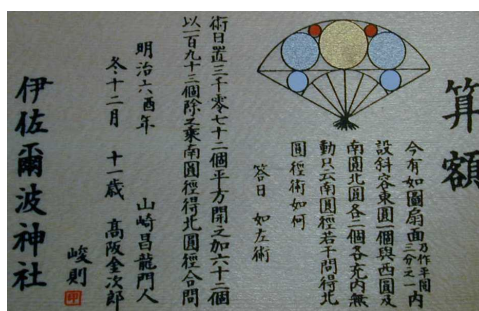 算額
今有如圖扇面乃作半圓三分之一内
設斜容東圓一個與西圓及
南圓北圓各二個各充内無
動只云南圓徑若干問得北
圓徑術如何
答曰 如左術
術曰置三千零七十二個平方開之加六十二個
以一百九十三個除之乘南圓徑得北圓徑合問
明治六酉年 山崎昌龍門人
冬十二月 十一歳 高阪金次郎
峻則 印
伊佐爾波神社